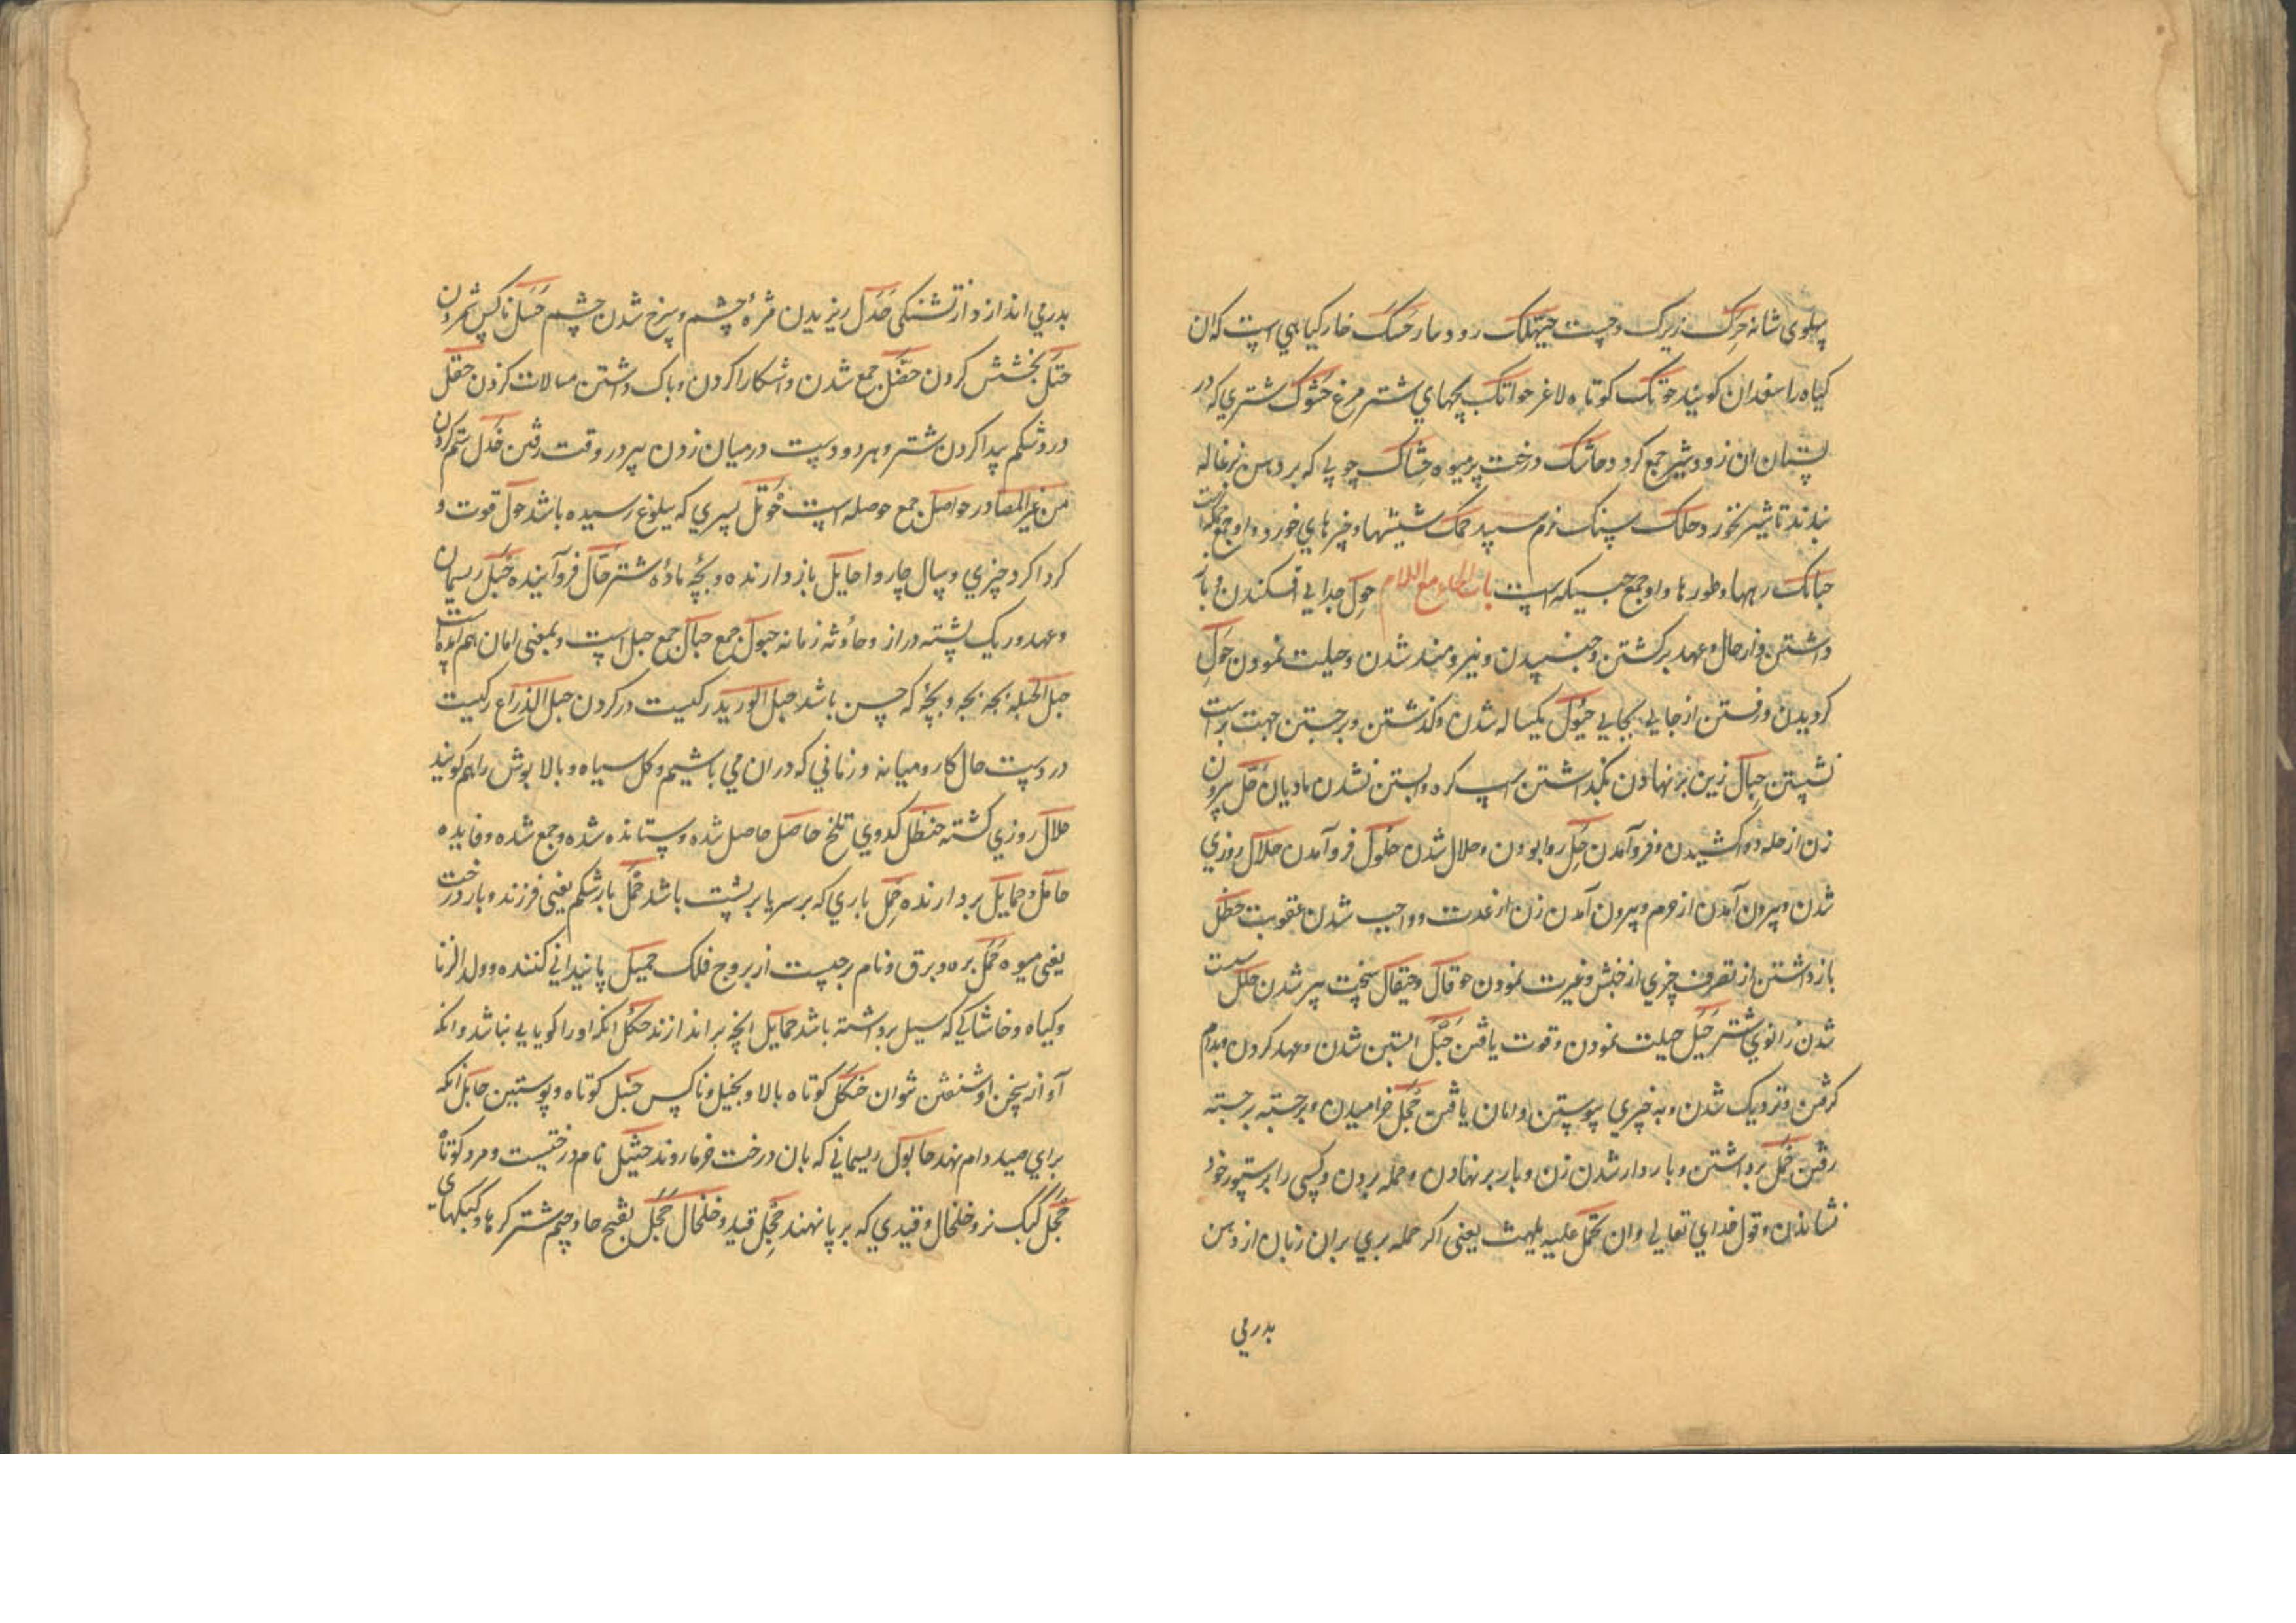 پهلوی شانه حرک زیرک و چست حیتلک رود مار حسک خار کیاهی است که ان
کیاه را سعدان کویند حوتک کوتاه لاغر حواتک بچهای شتر مرغ حشوک شتری که در
پستان ان زود شیر جمع کردد حاشک درخت پر میوه حشاک چوبی که بر دهن بزغاله
بندند تا شیر نخورد حلک سنک نرم سپید حمک شپشها و چیزهای خورد و او جمع حمکه است
حبائک رهها و طورها و او جمع حبیکه است باب الحاء مع اللام حول جدایی افکندن و باز
داشتن و از حال و عهد برکشتن و جنبیدن و نیرومند شدن و حیلت نمودن حول
کردیدن و رفتن از جایی بجایی حؤول یکساله شدن و کذشتن و برجستن جهت بر است
نشستن حبال زین بر نهادن نکبداشتن اسپ کره و بستن نشدن مادیان حل بیرون
زن از حله ده و کشیدن و فرو آمدن حل روا بودن و حلال شدن حلول فرو آمدن حلال روزی
شدن و بیرون آمدن از حرم و بیرون آمدن زن از عدت و واجب شدن عقوبت حظل
باز داشتن از تصرف چیزی از جنبش و غیرت نمودن حوقال و حیقال سخت پیر شدن حلل سست
شدن زانوی شتر حیل حیلت نمودن و قوت یافتن حبل ابستن شدن و عهد کردن و بدام
کرفتن و نزدیک شدن و به چیزی پیوستن و امان یافتن حجل خرامیدن و برجسته برجسته
رفتن حمل برداشتن و باردار شدن زن و بار بر نهادن و حمله بردن و کسی را بر ستور خود
نشاندن و قول خدای تعالی و ان تحمل علیه یلهث یعنی اکر حمله بری بران زبان از دهن
بدر می
بدر می اندازد از تشنکی حذل ریزیدن مژه چشم و سرخ شدن چشم حسل ناکس شمردن
حتل بخشش کردن حفل جمع شدن و اشکارا کردن و باک داشتن مبالات کردن حقل
درد شکم پیدا کردن شتر و هر دو دست در میان زدن پیر در وقت رفتن حدل ستم کردن
من غیر المصادر حواصل جمع حوصله است حوتل پسری که ببلوغ رسیده باشد حول قوت و
کرداکرد چیزی و سال چاروا حایل باز دارنده و بچه ماده شتر حال فرو آینده حبل ریسمان
و عهد و ریک پشته دراز و حادثه زمانه حبول جمع حبال جمع حبل است و بمعنی امان هم آمده است
حبل الحبله بچه بچه و بچه که جنین باشد حبل الورید رکیست در کردن حبل الذراع رکیست
در دست حال کار و میانه و زمانی که در ان می باشیم و کل سیاه و بالا پوش را هم کویند
حلال روزی کشته حنظل کدوی تلخ حاصل حاصل شده و ستانده شده و جمع شده و فایده
حامل و حمایل بردارنده حمل باری که بر سر یا بر پشت باشد حمل بار شکم یعنی فرزند و بار درخت
یعنی میوه حمل بره و برق و نام برجیست از بروج فلک حمیل پایندانی کننده و ولد الزنا
و کیاه و خاشاکی که سیل برداشته باشد حمایل انچه بر اندازند حکل انکه او را کویایی نباشد و انکه
آواز سخن او شنفتن نتوان حنکل کوتاه بالا و بخیل و ناکس حنبل کوتاه و پوستین حابل انکه
برای صید دام نهد حابول ریسمانی که بان درخت خرما روند حثیل نام درختیست و مرد کوتاه
حجل کبک نر و خلخال و قیدی که بر پا نهند حجل قید و خلخال حجل بفتح حا و جیم شتر کره‌ها و کبکهای